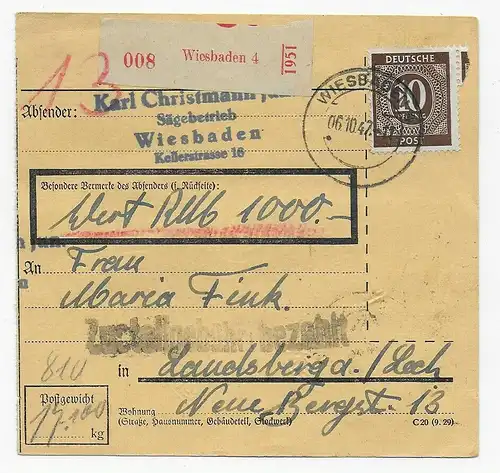 008 Wiesbaden 4 1951
13
DEUTSCHE
POST
WIESBADEN
06.10.47
Absender:
Karl Christmann jun.
Sägebetrieb
Wiesbaden
Kellerstrasse 18
Besondere Vermerke des Absenders (s. Rückseite):
Wert RM 1000.-
n jun.
An Frau
n
Maria Fink.
Zustellgebühr bezahlt
810
in Landsberg a./Lech
Postgewicht
17.100
kg
Wohnung Neue Bergst. 13
(Straße, Hausnummer, Gebäudeteil, Stockwerk)
C 20 (9. 29)